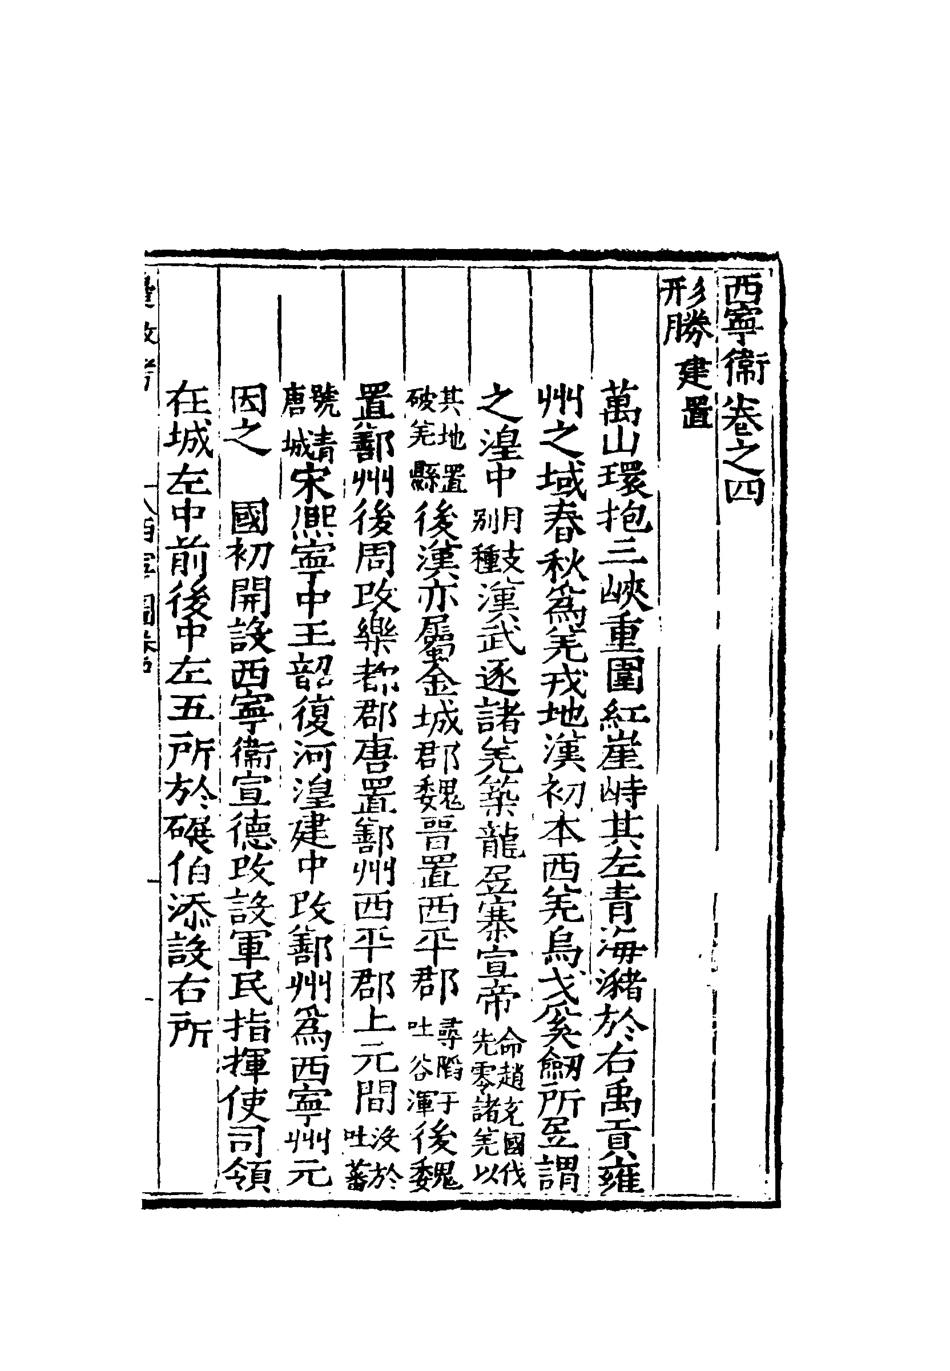 西寧衞卷之四
形勝建置
萬山環抱三峽重圍紅崖峙其左青海瀦於右禹貢雍
州之域春秋爲羌戎地漢初本西羌烏戈爰劒所居謂
之湟中月支別種漢武逐諸羌築龍居寨宣帝命趙充國伐先零諸羌以
其地置破羌縣後漢亦屬金城郡魏晉置西平郡尋陷于吐谷渾後魏
置鄯州後周改樂都郡唐置鄯州西平郡上元間没於吐蕃
號青唐城宋熙寧中王韶復河湟建中改鄯州爲西寧州元
因之　國初開設西寧衞宣德改設軍民指揮使司領
在城左中前後中左五所於碾伯添設右所